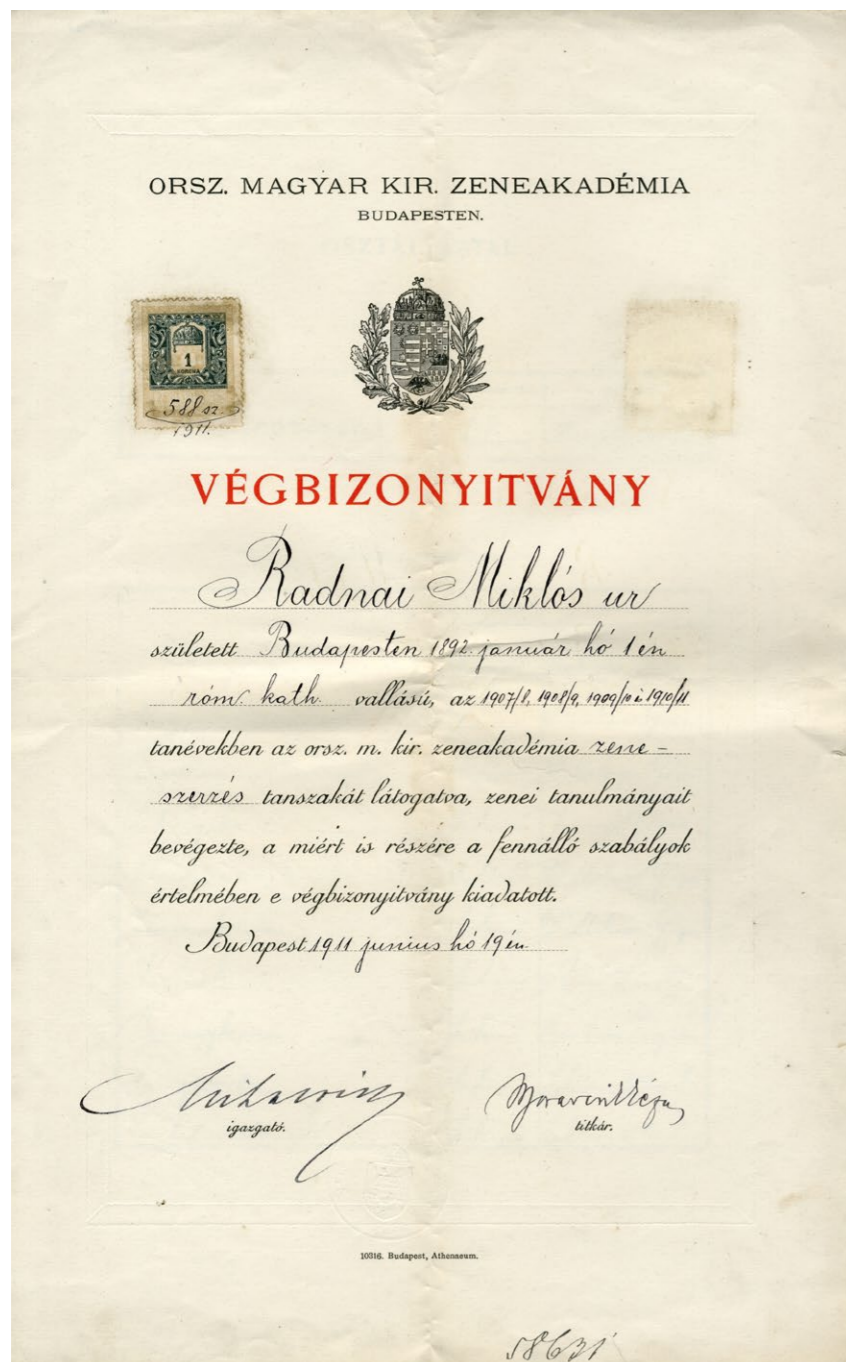 ORSZ. MAGYAR KIR. ZENEAKADÉMIA
BUDAPESTEN.
1
KORONA
588 sz.
1911.
VÉGBIZONYITVÁNY
Radnai Miklós ur
született Budapesten 1892. január hó 1én
róm. kath. vallású, az 1907/8, 1908/9, 1909/10 i 1910/11
tanévekben az orsz. m. kir. zeneakadémia zene-
szerzés tanszakát látogatva, zenei tanulmányait
bevégezte, a miért is részére a fennálló szabályok
értelmében e végbizonyitvány kiadatott.
Budapest 1911 junius hó 19én
igazgató.
titkár.
10316. Budapest, Athenaeum.